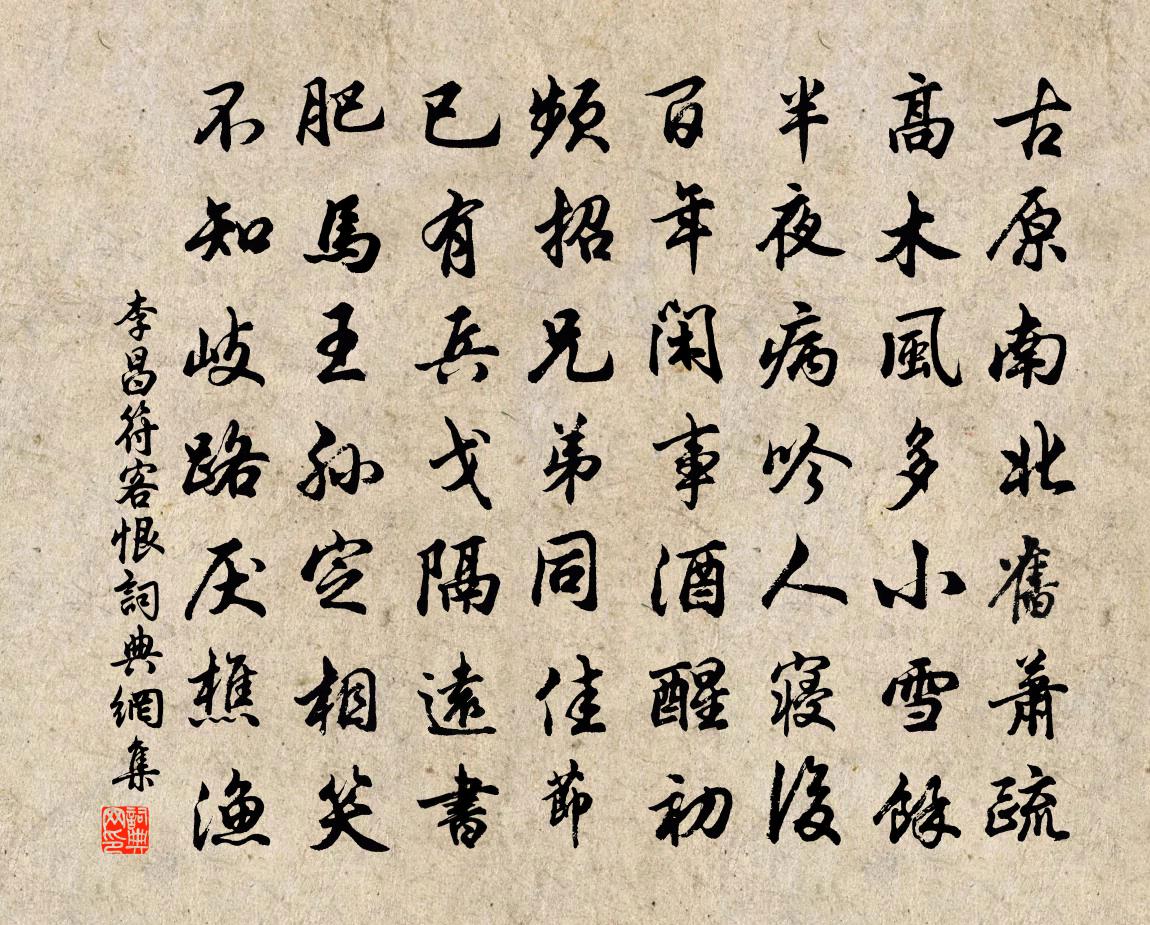 古原南北舊蕭疏
高木風多小雪餘
半夜病吟人寝後
百年閑事酒醒初
頻招兄弟同佳節
已有兵戈隔遠書
肥馬王孫定相笑
不知岐路厌樵漁
李昌符客恨詞典網集
詞典網印